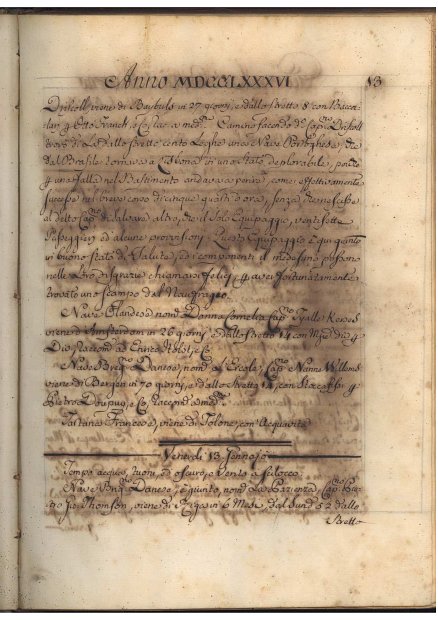 Anno MDCCLXXXVI 13
Driscoll viene di in 27 giorni, e dallo stretto 8 con
Otto Franck, Camino facendo d.o Cap.no Driscoll
dallo stretto cento Leghe una Nave Portoghese, che
dal Brasile tornava a Lisbona in uno stato deplorabile, poiche
una falla nel Bastimento andava a perire, come effettivamente
successe nel breve corso di cinque quarti d'ora, senza che riescisse
al detto Cap.no di salvare altro, che il solo Equipaggio, ventisette
Passeggieri ed alcune provvisioni. Questo Equipaggio è qui giunto
in buono stato di Salute, ed i componenti il medesimo possono
nelle Loro disgrazie chiamarsi felici, aver fortunatamente
trovato uno scampo dal Naufragio.
Nave Olandese nom.a Donna Cornelia Cap.no Tjalle
viene d'Amsterdam in 26 giorni e dallo stretto 14 con
ad Enrico
Nave Danese, nom.a L'Ercole, Cap.no Nanne Willems
viene di Bergen in 70 giorni, e dallo stretto 14, con Stoccofis
Pietro e C.
Tartana Francese, viene di Tolone, con Acquavite
Venerdì 13 Gennajo
Tempo acquoso, tuoni, ed oscuro, e vento a scilocco
Nave Danese, è giunta, nom.a La Pazienza, Cap.no
Thomsen, viene di Riga in 6 Mesi, dal Sund 52 dallo
Stretto